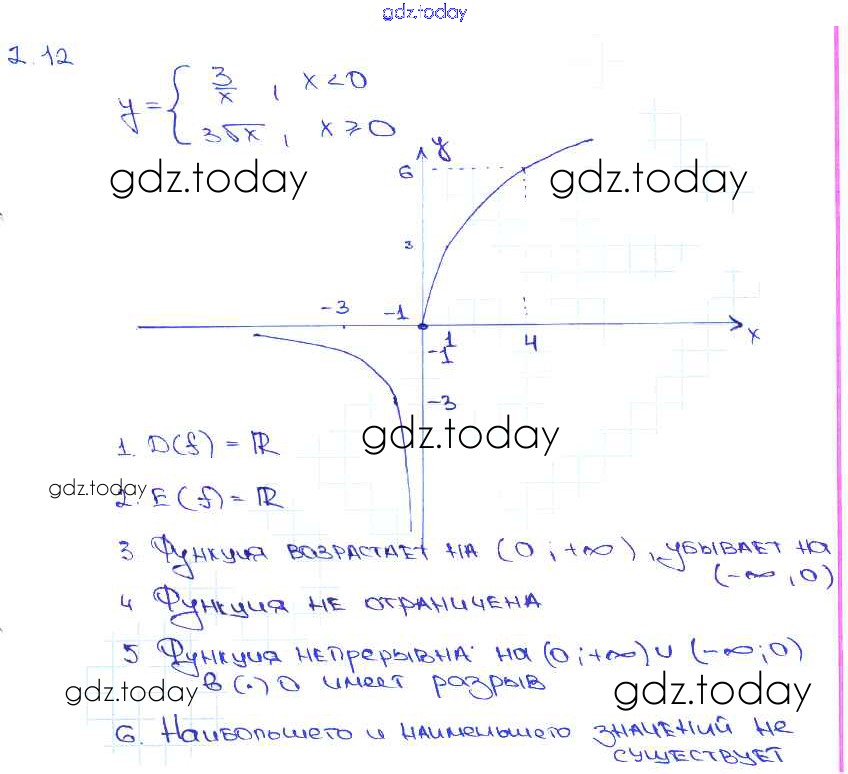 gdz.today
2.12
y = { 3/x , x < 0
3√x , x ⩾ 0
y
6
gdz.today gdz.today
3
-3 -1
x
1 4
-1
-3
gdz.today
1. D(f) = ℝ
gdz.today
2. E(f) = ℝ
3 Функция возрастает на (0; +∞), убывает на
(-∞, 0)
4 Функция не ограничена
5 Функция непрерывна: на (0; +∞) ∪ (-∞; 0)
в (.) 0 имеет разрыв
gdz.today gdz.today
6. Наибольшего и наименьшего значений не
существует